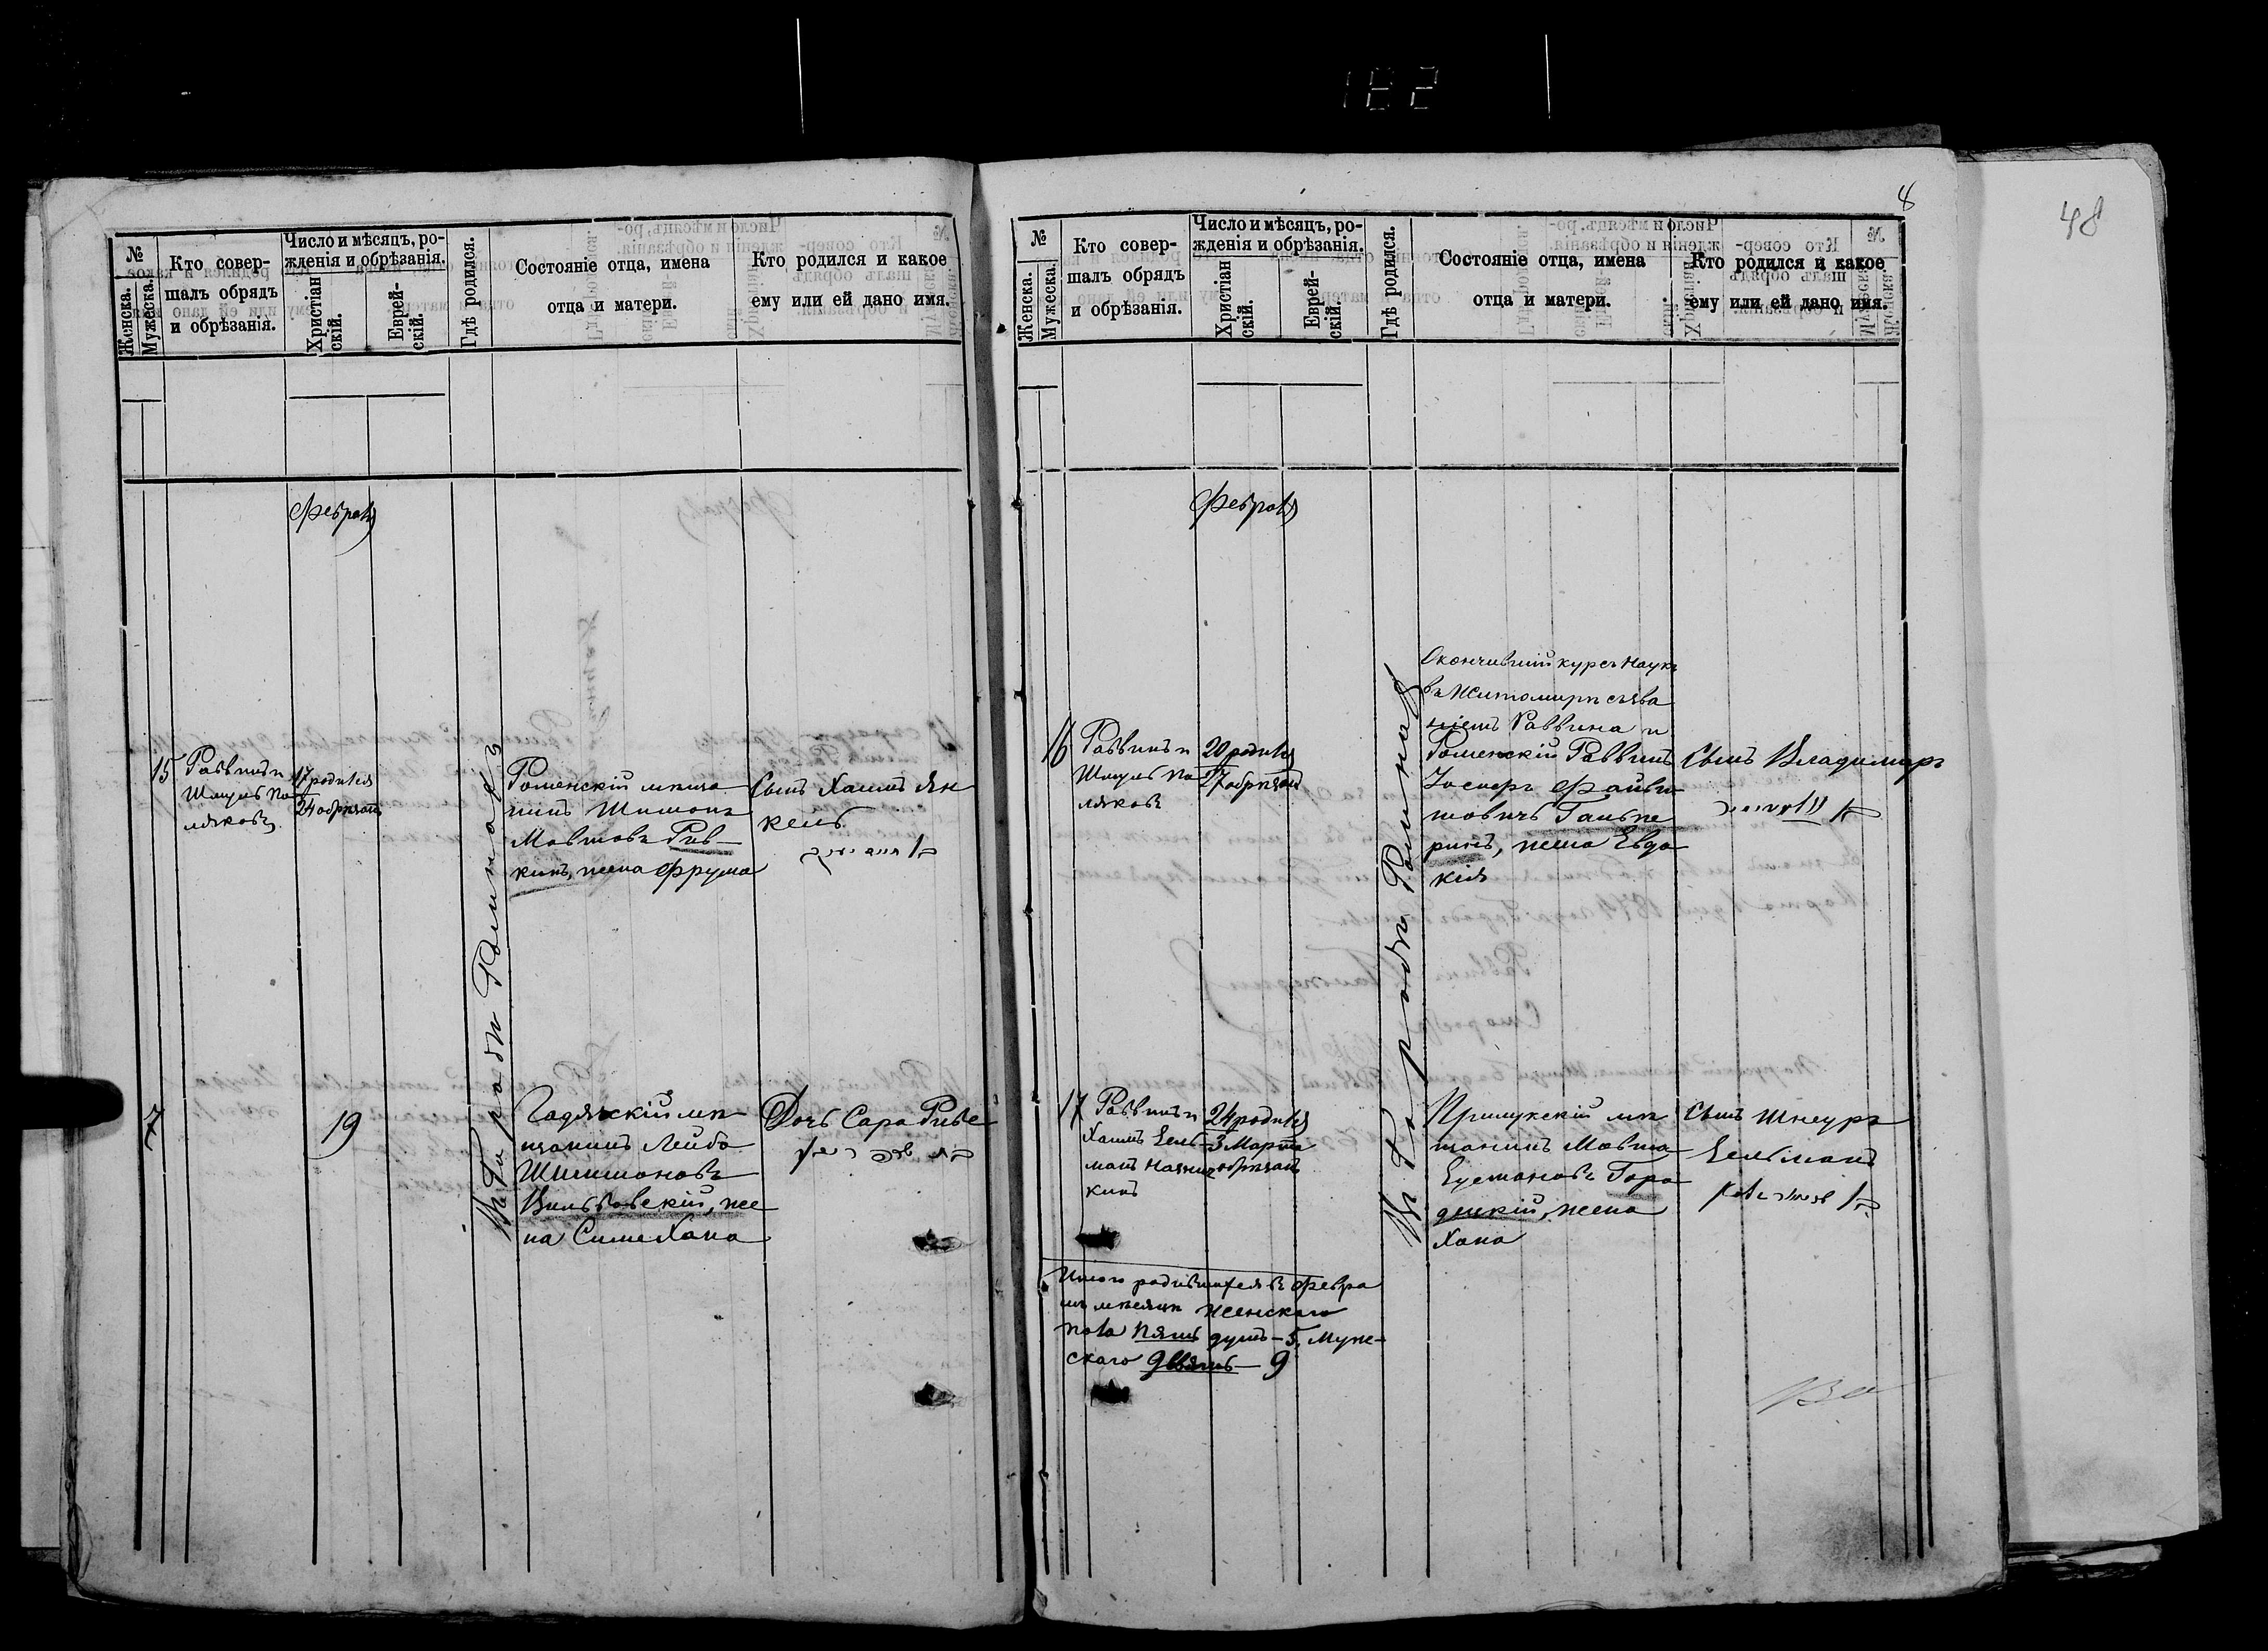 182
48
№
Женска.
Мужеска.
Кто совер-
шалъ обрядъ
и обрѣзанія.
Число и мѣсяцъ, ро-
жденія и обрѣзанія.
Христіан
скій.
Еврей-
скій.
Гдѣ родился.
Состояніе отца, имена
отца и матери.
Кто родился и какое
ему или ей дано имя.
Феврал
15
Раввинъ и
Шмуль По
ляковъ
17 родился
24 обрѣзанъ
Въ городѣ Ромнахъ
Роменскій мѣща
нинъ Шимонъ
Мовшовъ Рив-
кинъ, жена Фрума
Сынъ Хаимъ Ян
кель
7
19
Гадячскій мѣ
щанинъ Лейба
Шимоновъ
Вильковскій, же
на Сима Хана
Дочь Сара Риве
8
№
Женска.
Мужеска.
Кто совер-
шалъ обрядъ
и обрѣзанія.
Число и мѣсяцъ, ро-
жденія и обрѣзанія.
Христіан
скій.
Еврей-
скій.
Гдѣ родился.
Состояніе отца, имена
отца и матери.
Кто родился и какое
ему или ей дано имя.
Феврал
16
Раввинъ и
Шмуль По
ляковъ
20 родился
27 обрѣзанъ
Въ городѣ Ромнахъ
Окончившій курсъ Наукъ
въ Житомирѣ съ зва
ніемъ Раввина и
Роменскій Раввинъ
Іосифъ Файви
шовичъ Гальпе
ринъ, жена Евдо
кія
Сынъ Владимиръ
17
Раввинъ и
Хаимъ Зель
манъ
кинъ
24 родился
3 Марта
обрѣзанъ
Прилукскій мѣ
щанинъ Мовша
Гора
децкій, жена
Хана
Сынъ Шнеуръ
Зельманъ
Итого родившихся въ Февра
лѣ мѣсяцѣ Женскаго
пола пять душъ – 5, Муже-
скаго девять – 9